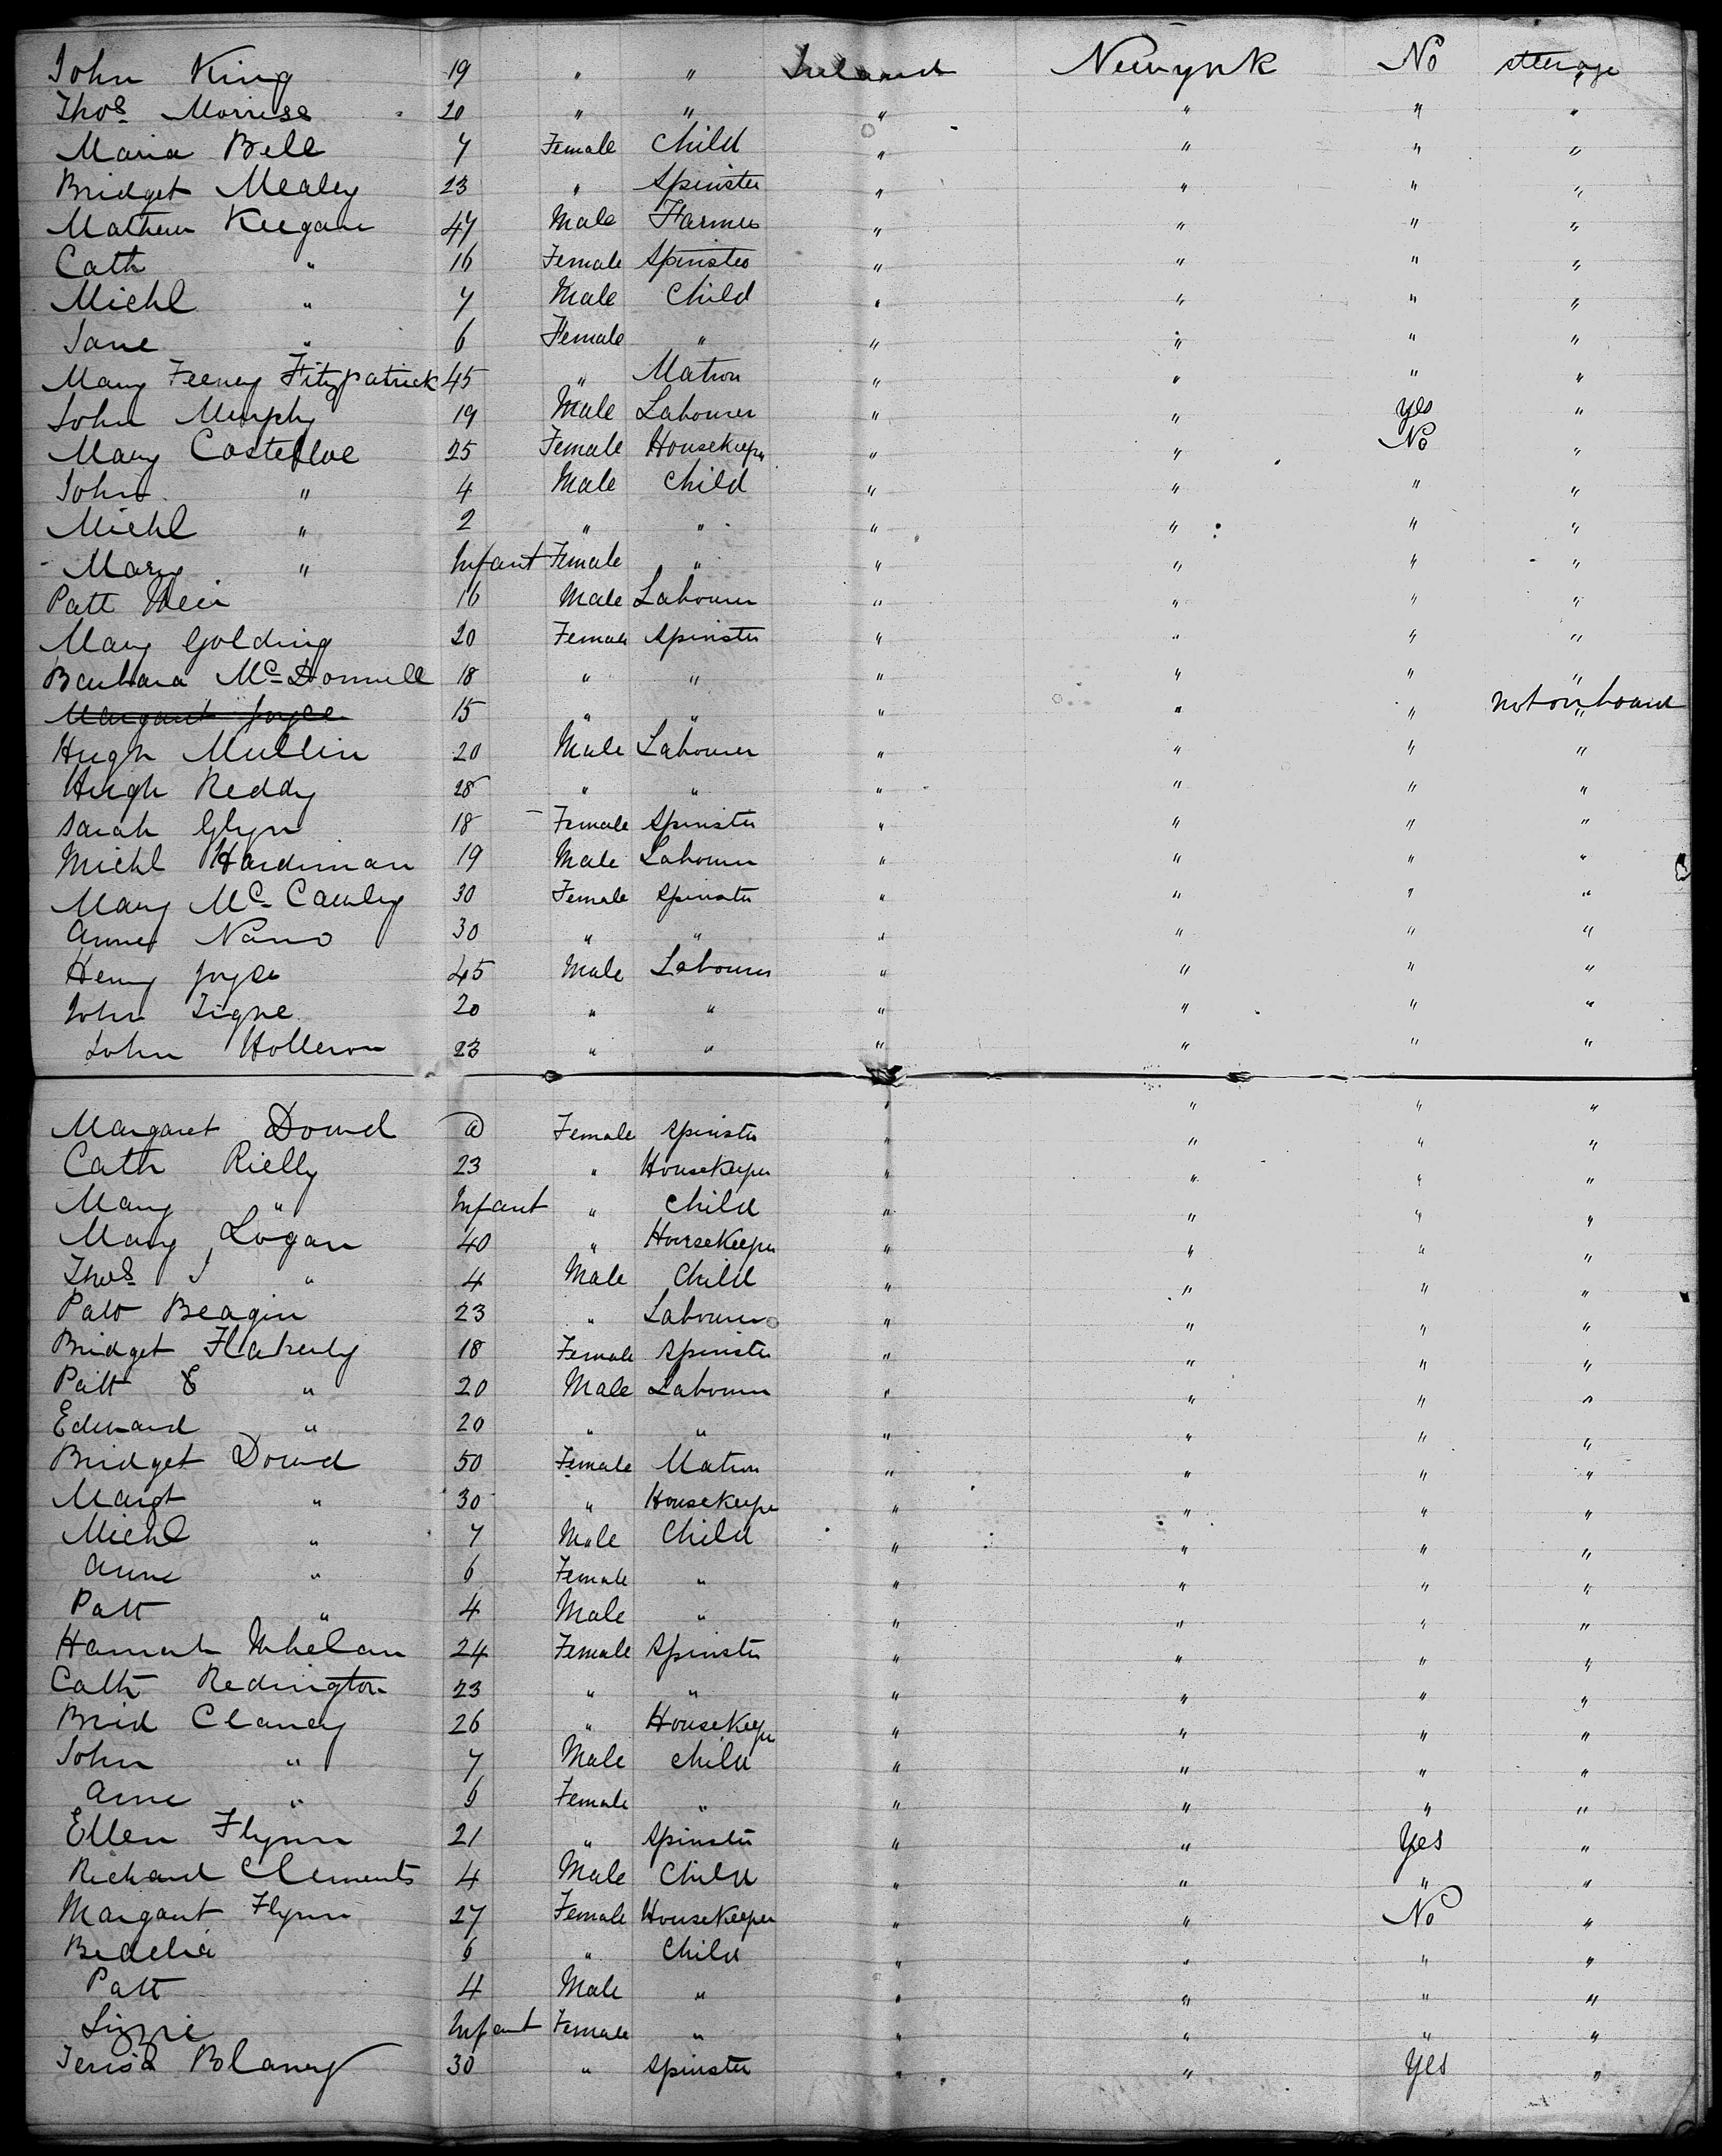 John King 19 " " Ireland Newyork No steerage
Thos Morriss 20 " " " " " "
Maria Bell 7 Female Child " " " "
Bridget Mealey 23 " Spinster " " " "
Mathew Keegan 47 Male Farmer " " " "
Cath " 16 Female Spinster " " " "
Michl " 7 Male Child " " " "
Jane " 6 Female " " " " "
Mary Feeney Fitzpatrick 45 " Matron " " " "
John Murphy 19 Male Labourer " " Yes "
Mary Costelloe 25 Female Housekeeper " " No "
John " 4 Male Child " " " "
Michl " 2 " " " " " "
Mary " Infant Female " " " " "
Patt Weir 16 Male Labourer " " " "
Mary Golding 20 Female Spinster " " " "
Barbara McDonnell 18 " " " " " "
Margaret Joyce 15 " " " " " not on board
Hugh Mullin 20 Male Labourer " " " "
Hugh Reddy 28 " " " " " "
Sarah Glyn 18 Female Spinster " " " "
Michl Hardiman 19 Male Labourer " " " "
Mary McCawley 30 Female Spinster " " " "
Anne 30 " " " " " "
Henry Joyce 45 Male Labourer " " " "
John Tigne 20 " " " " " "
John Holleron 23 " " " " " "
Margaret Dowd Female Spinster " " " "
Cath Rielly 23 " Housekeeper " " " "
Mary " Infant " Child " " " "
Mary Logan 40 " Housekeeper " " " "
Thos " 4 Male Child " " " "
Patt Beagin 23 " Labourer " " " "
Bridget Flaherly 18 Female Spinster " " " "
Patt " 20 Male Labourer " " " "
Edward " 20 " " " " " "
Bridget Dowd 50 Female Matron " " " "
Margt " 30 " Housekeeper " " " "
Michl " 7 Male Child " " " "
Anne " 6 Female " " " " "
Patt " 4 Male " " " " "
Hannah Whelan 24 Female Spinster " " " "
Cath Redington 23 " " " " " "
Brid Clancy 26 " Housekeeper " " " "
John " 7 Male child " " " "
Anne " 6 Female " " " " "
Ellen Flynn 21 " Spinster " " Yes "
Richard Clements 4 Male Child " " " "
Margaret Flynn 27 Female Housekeeper " " No "
Bedelia 6 " Child " " " "
Patt 4 Male " " " " "
Lizzie Infant Female " " " " "
Terisa Blaney 30 " Spinster " " Yes "